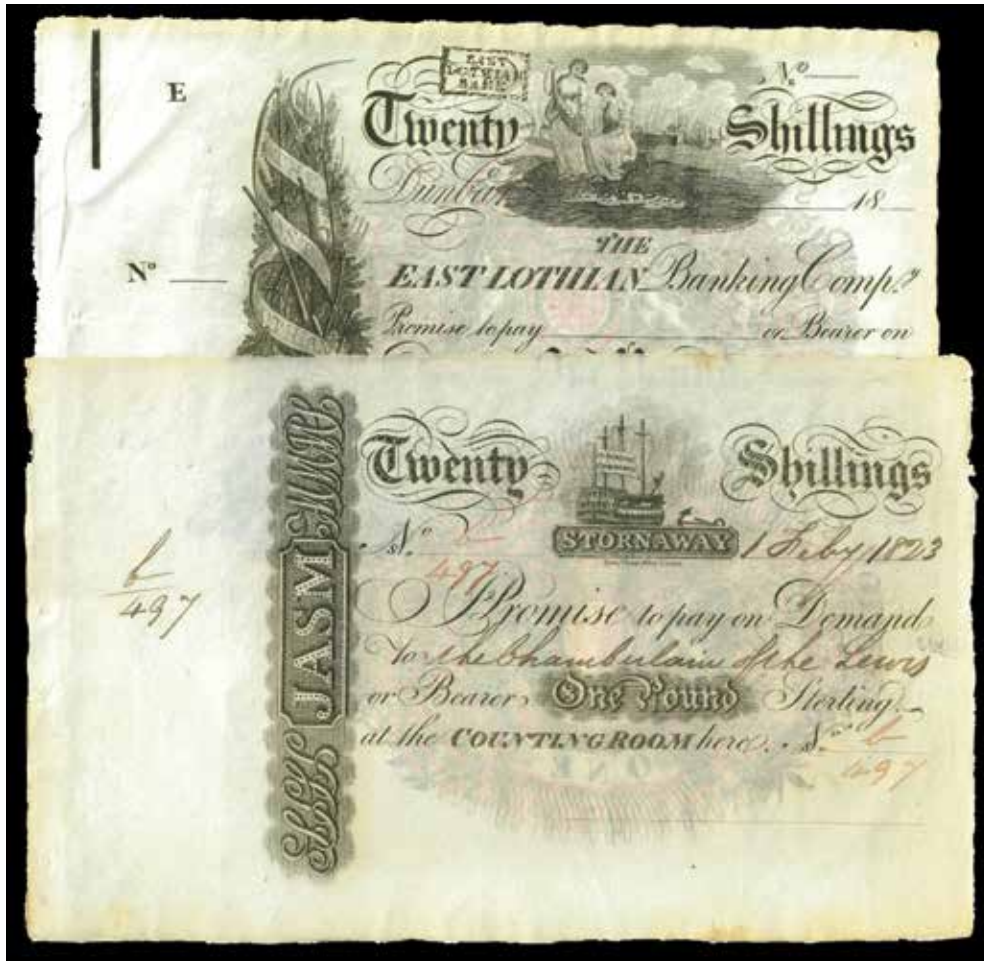 E
EAST
LOTHIAN
BANK
Twenty Shillings
Nº
Dunbar 18
Nº
THE
EAST LOTHIAN Banking Compy
Promise to pay or Bearer on
Twenty Shillings
JASM
Nº
b/497
STORNAWAY
1 Feby 1823
b/497
I Promise to pay on Demand
To the Chamberlain of the Lewis
or Bearer One Pound Sterling
at the COUNTING ROOM here. Nº b/497
ONE